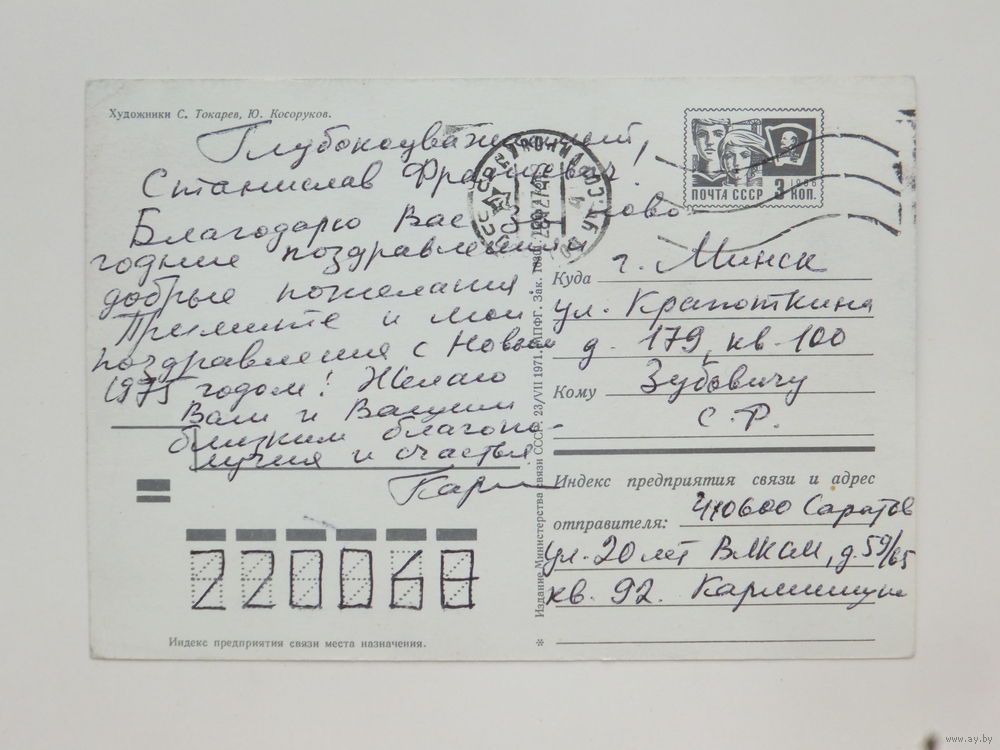 Художники С. Токарев, Ю. Косоруков.
Глубокоуважаемый,
Станислав
Благодарю Вас за ново-
годние поздравления
добрые пожелания.
Примите и мои
поздравления с Новым
1975 годом! Желаю
Вам и Вашим
близким благопо-
лучия и счастья
ПОЧТА СССР
1966
3 КОП.
Куда г. Минск
ул. Крапоткина
д. 179, кв. 100
Кому Зубовичу
С. Р.
Индекс предприятия связи и адрес
отправителя: 410600 Саратов
ул. 20 лет ВЛКСМ, д. 59/65
кв. 92.
Издание Министерства связи СССР. 23/VII 1971.
220068
Индекс предприятия связи места назначения.
*
www.ay.by